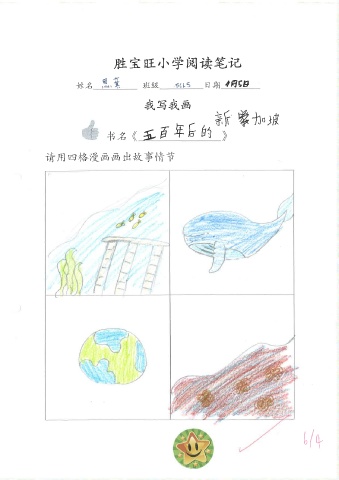 胜宝旺小学阅读笔记
姓名 班级 日期 4月5日
我写我画
书名《五百年后的新加坡》
请用四格漫画画出故事情节
6/4